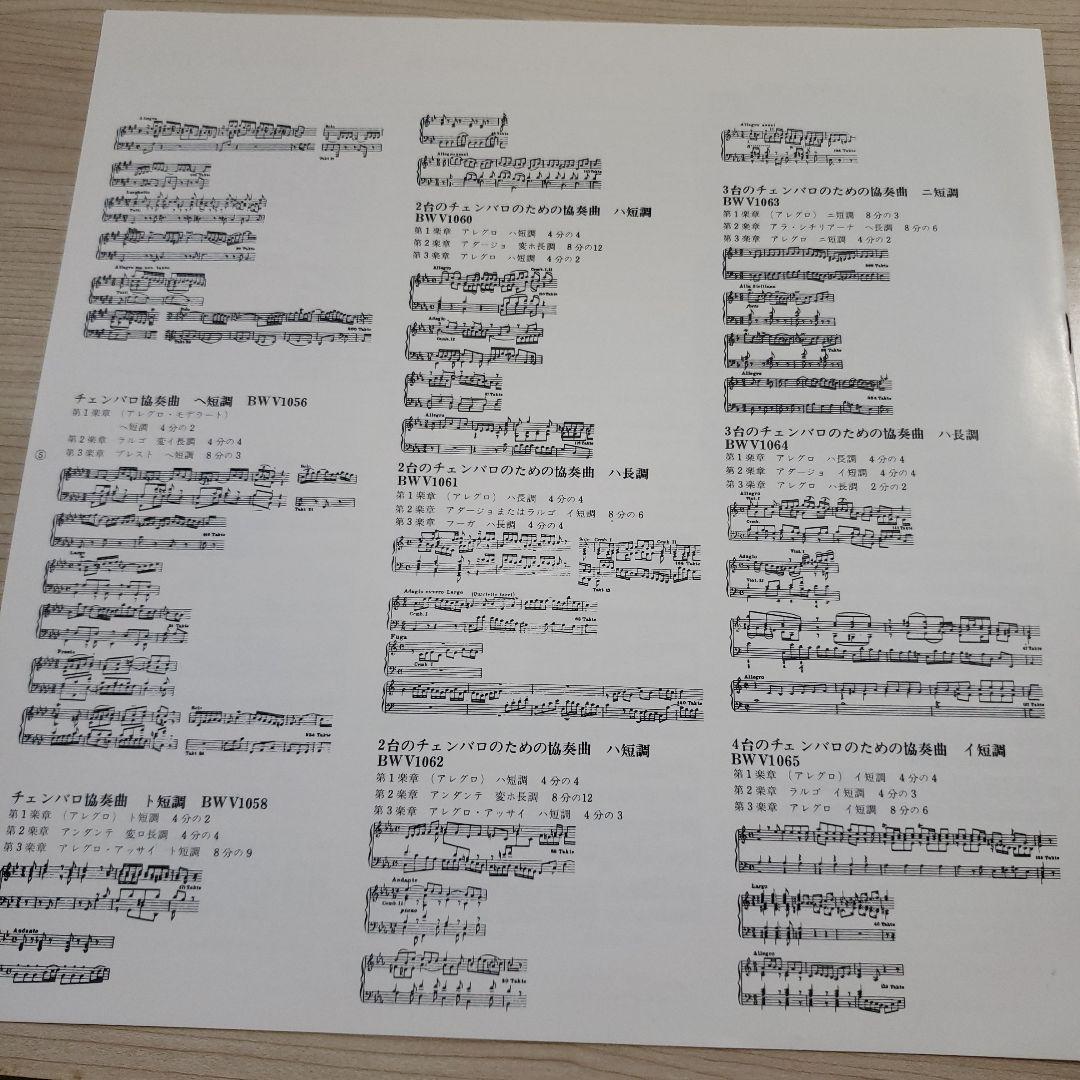 Allegro
Solo
Larghetto
Tutti
Allegro ma non tanto
Tutti
チェンバロ協奏曲 ヘ短調 BWV1056
第1楽章 (アレグロ・モデラート)
ヘ短調 4分の2
第2楽章 ラルゴ 変イ長調 4分の4
第3楽章 プレスト ヘ短調 8分の3
Solo
Takt 21
Largo
Presto
Solo
チェンバロ協奏曲 ト短調 BWV1058
第1楽章 (アレグロ) ト短調 4分の2
第2楽章 アンダンテ 変ロ長調 4分の4
第3楽章 アレグロ・アッサイ ト短調 8分の9
Andante
Allegro assai
2台のチェンバロのための協奏曲 ハ短調
BWV1060
第1楽章 アレグロ ハ短調 4分の4
第2楽章 アダージョ 変ホ長調 8分の12
第3楽章 アレグロ ハ短調 4分の2
Allegro
Cemb. I.II
Adagio
Cemb. II
Allegro
2台のチェンバロのための協奏曲 ハ長調
BWV1061
第1楽章 (アレグロ) ハ長調 4分の4
第2楽章 アダージョまたはラルゴ イ短調 8分の6
第3楽章 フーガ ハ長調 4分の4
Cemb. I
Cemb. II
Adagio ovvero Largo
Cemb. I
Fuga
Cemb. I
2台のチェンバロのための協奏曲 ハ短調
BWV1062
第1楽章 (アレグロ) ハ短調 4分の4
第2楽章 アンダンテ 変ホ長調 8分の12
第3楽章 アレグロ・アッサイ ハ短調 4分の3
Andante
Cemb. II
piano
Allegro assai
3台のチェンバロのための協奏曲 ニ短調
BWV1063
第1楽章 (アレグロ) ニ短調 8分の3
第2楽章 アラ・シチリアーナ ヘ長調 8分の6
第3楽章 アレグロ ニ短調 4分の2
Alla Siciliana
forte
Allegro
3台のチェンバロのための協奏曲 ハ長調
BWV1064
第1楽章 アレグロ ハ長調 4分の4
第2楽章 アダージョ イ短調 4分の4
第3楽章 アレグロ ハ長調 2分の2
Allegro
Viol. I
Cemb.
Adagio
Viol. I
Viol. II
Allegro
4台のチェンバロのための協奏曲 イ短調
BWV1065
第1楽章 (アレグロ) イ短調 4分の4
第2楽章 ラルゴ イ短調 4分の3
第3楽章 アレグロ イ短調 8分の6
Largo
Allegro